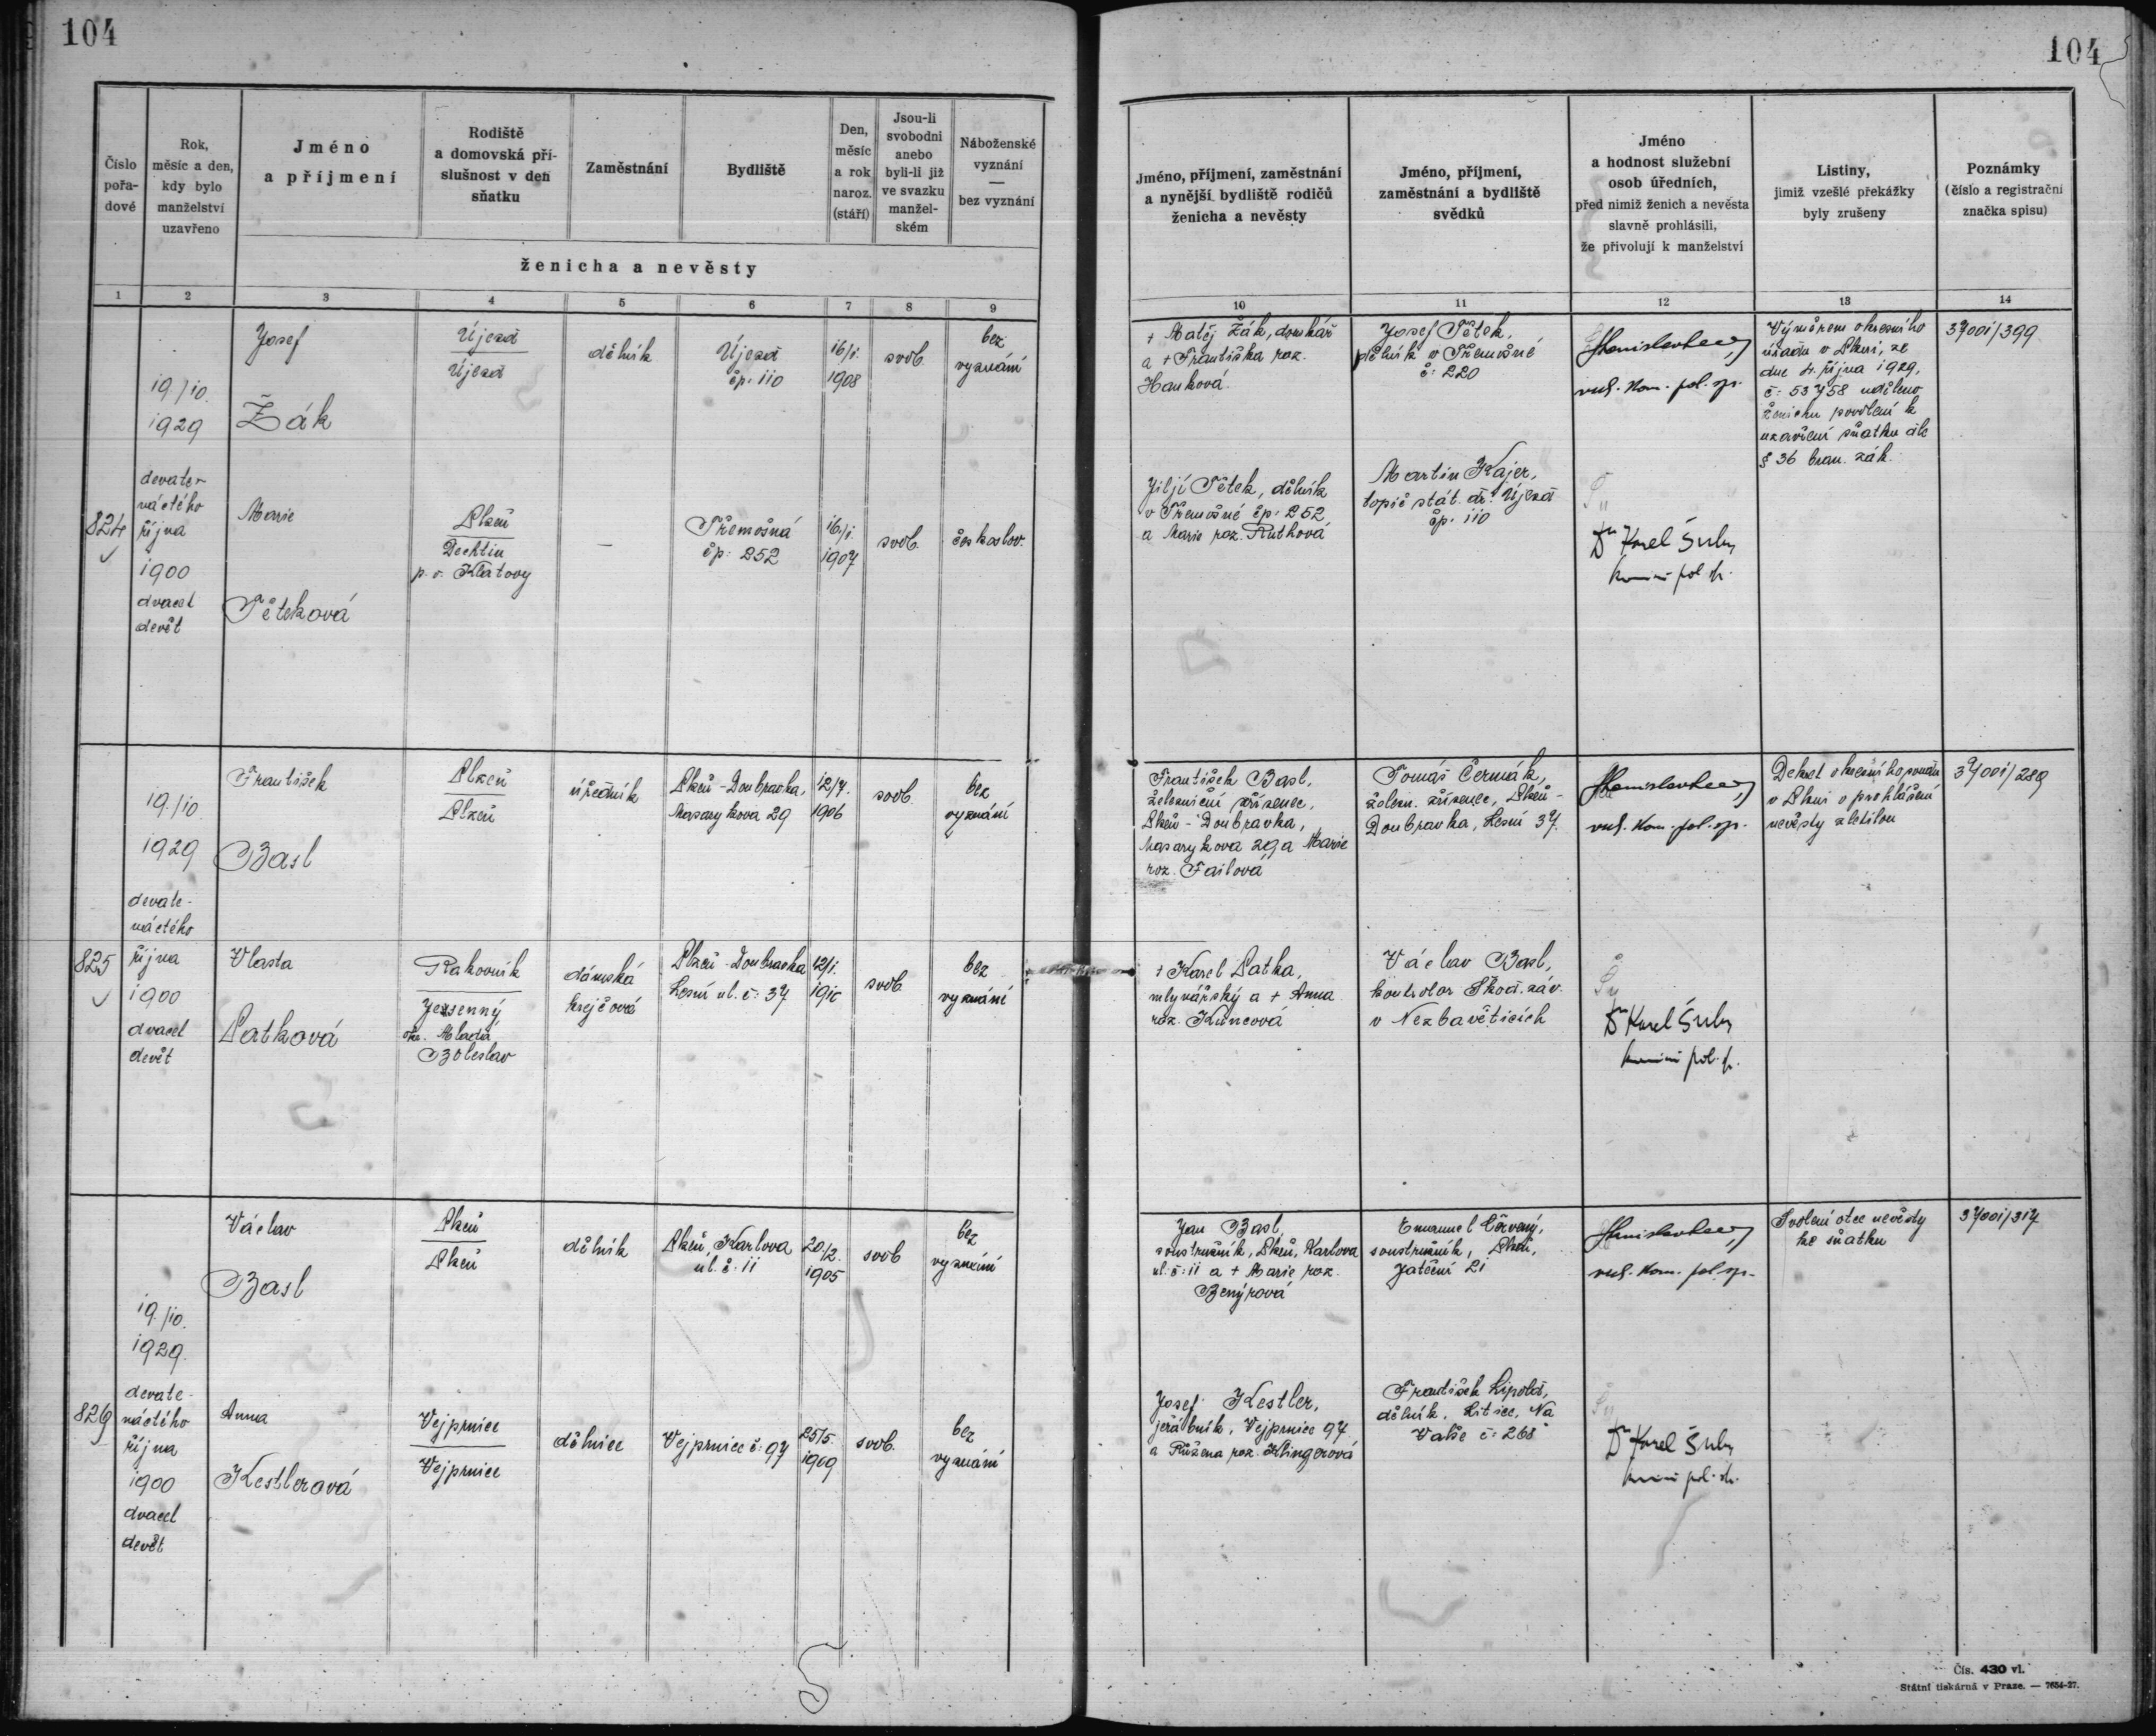 104
104
Číslo pořa-dové
Rok, měsíc a den, kdy bylo manželství uzavřeno
Jméno a příjmení
Rodiště a domovská pří-slušnost v den sňatku
Zaměstnání
Bydliště
Den, měsíc a rok naroz. (stáří)
Jsou-li svobodni anebo byli-li již ve svazku manžel-ském
Náboženské vyznání — bez vyznání
ženicha a nevěsty
Jméno, příjmení, zaměstnání a nynější bydliště rodičů ženicha a nevěsty
Jméno, příjmení, zaměstnání a bydliště svědků
Jméno a hodnost služební osob úředních, před nimiž ženich a nevěsta slavně prohlásili, že přivolují k manželství
Listiny, jimiž vzešlé překážky byly zrušeny
Poznámky (číslo a registrační značka spisu)
1 2 3 4 5 6 7 8 9 10 11 12 13 14
824
19./10.
1929
devate-
náctého
října
1900
dvacet
devět
Josef
Žák
Újezd
Újezd
dělník
Újezd
čp: 110
16/1.
1908
svob.
bez
vyznání
+ Matěj Žák, domkář
a + Františka roz.
Hanková.
Josef Tětek,
dělník v Třemošné
č: 220
vrch. kom. pol. sp.
Výměrem okresního
úřadu v Plzni, ze
dne 4. října 1929,
č: 53758 uděleno
ženichu povolení k
uzavření sňatku dle
§ 36 bran. zák.
37001/399
Marie
Tětková
Plzeň
Dechtín
p. o. Klatovy
—
Třemošná
čp: 252
16/1.
1907
svob.
českoslov.
Jiljí Tětek, dělník
v Třemošné čp: 252
a Marie roz. Rutková
Martin Kajer,
topič stát. dr. Újezd
čp. 110
Dr Karel
pol. sp.
825
19./10.
1929
devate-
náctého
října
1900
dvacet
devět
František
Basl
Plzeň
Plzeň
úředník
Plzeň-Doubravka,
Masarykova 29
12/7.
1906
svob.
bez
vyznání
František Basl,
železniční zřízenec,
Plzeň-Doubravka,
Masarykova 29 a Marie
roz. Failová
Tomáš Čermák,
železn. zřízenec, Plzeň-
Doubravka, Lesní 37.
vrch. kom. pol. sp.
Dekret okresního soudu
v Plzni o prohlášení
nevěsty zletilou
37001/289
Vlasta
Patková
Rakovník
Jesenný
okr. Mladá
Boleslav
dámská
krejčová
Plzeň-Doubravka
Lesní ul. č: 37
12/1.
1910
svob
bez
vyznání
+ Karel Patka,
mlynářský a + Anna
roz. Kuncová
Václav Basl,
kontrolor Škod. záv.
v Nezbavěticích
Dr Karel
pol. sp.
826
19./10.
1929.
devate-
náctého
října
1900
dvacet
devět
Václav
Basl
Plzeň
Plzeň
dělník
Plzeň, Karlova
ul. č. 11
20./2.
1905
svob
bez
vyznání
Jan Basl,
soustružník, Plzeň, Karlova
ul. č: 11 a + Marie roz.
Benýrová
Emanuel Červený,
soustružník, Plzeň,
Jateční 21
vrch. kom. pol. sp.
Svolení otce nevěsty
ke sňatku
37001/317
Anna
Kestlerová
Vejprnice
Vejprnice
dělnice
Vejprnice č: 97
25/5.
1909
svob.
bez
vyznání
Josef Kestler,
jeřábník, Vejprnice 97
a Růžena roz. Klingerová
František Lipold,
dělník, Litice, Na
Valše č: 268
Dr Karel
pol. sp.
Čís. 430 vl.
Státní tiskárna v Praze. — 7654-27.